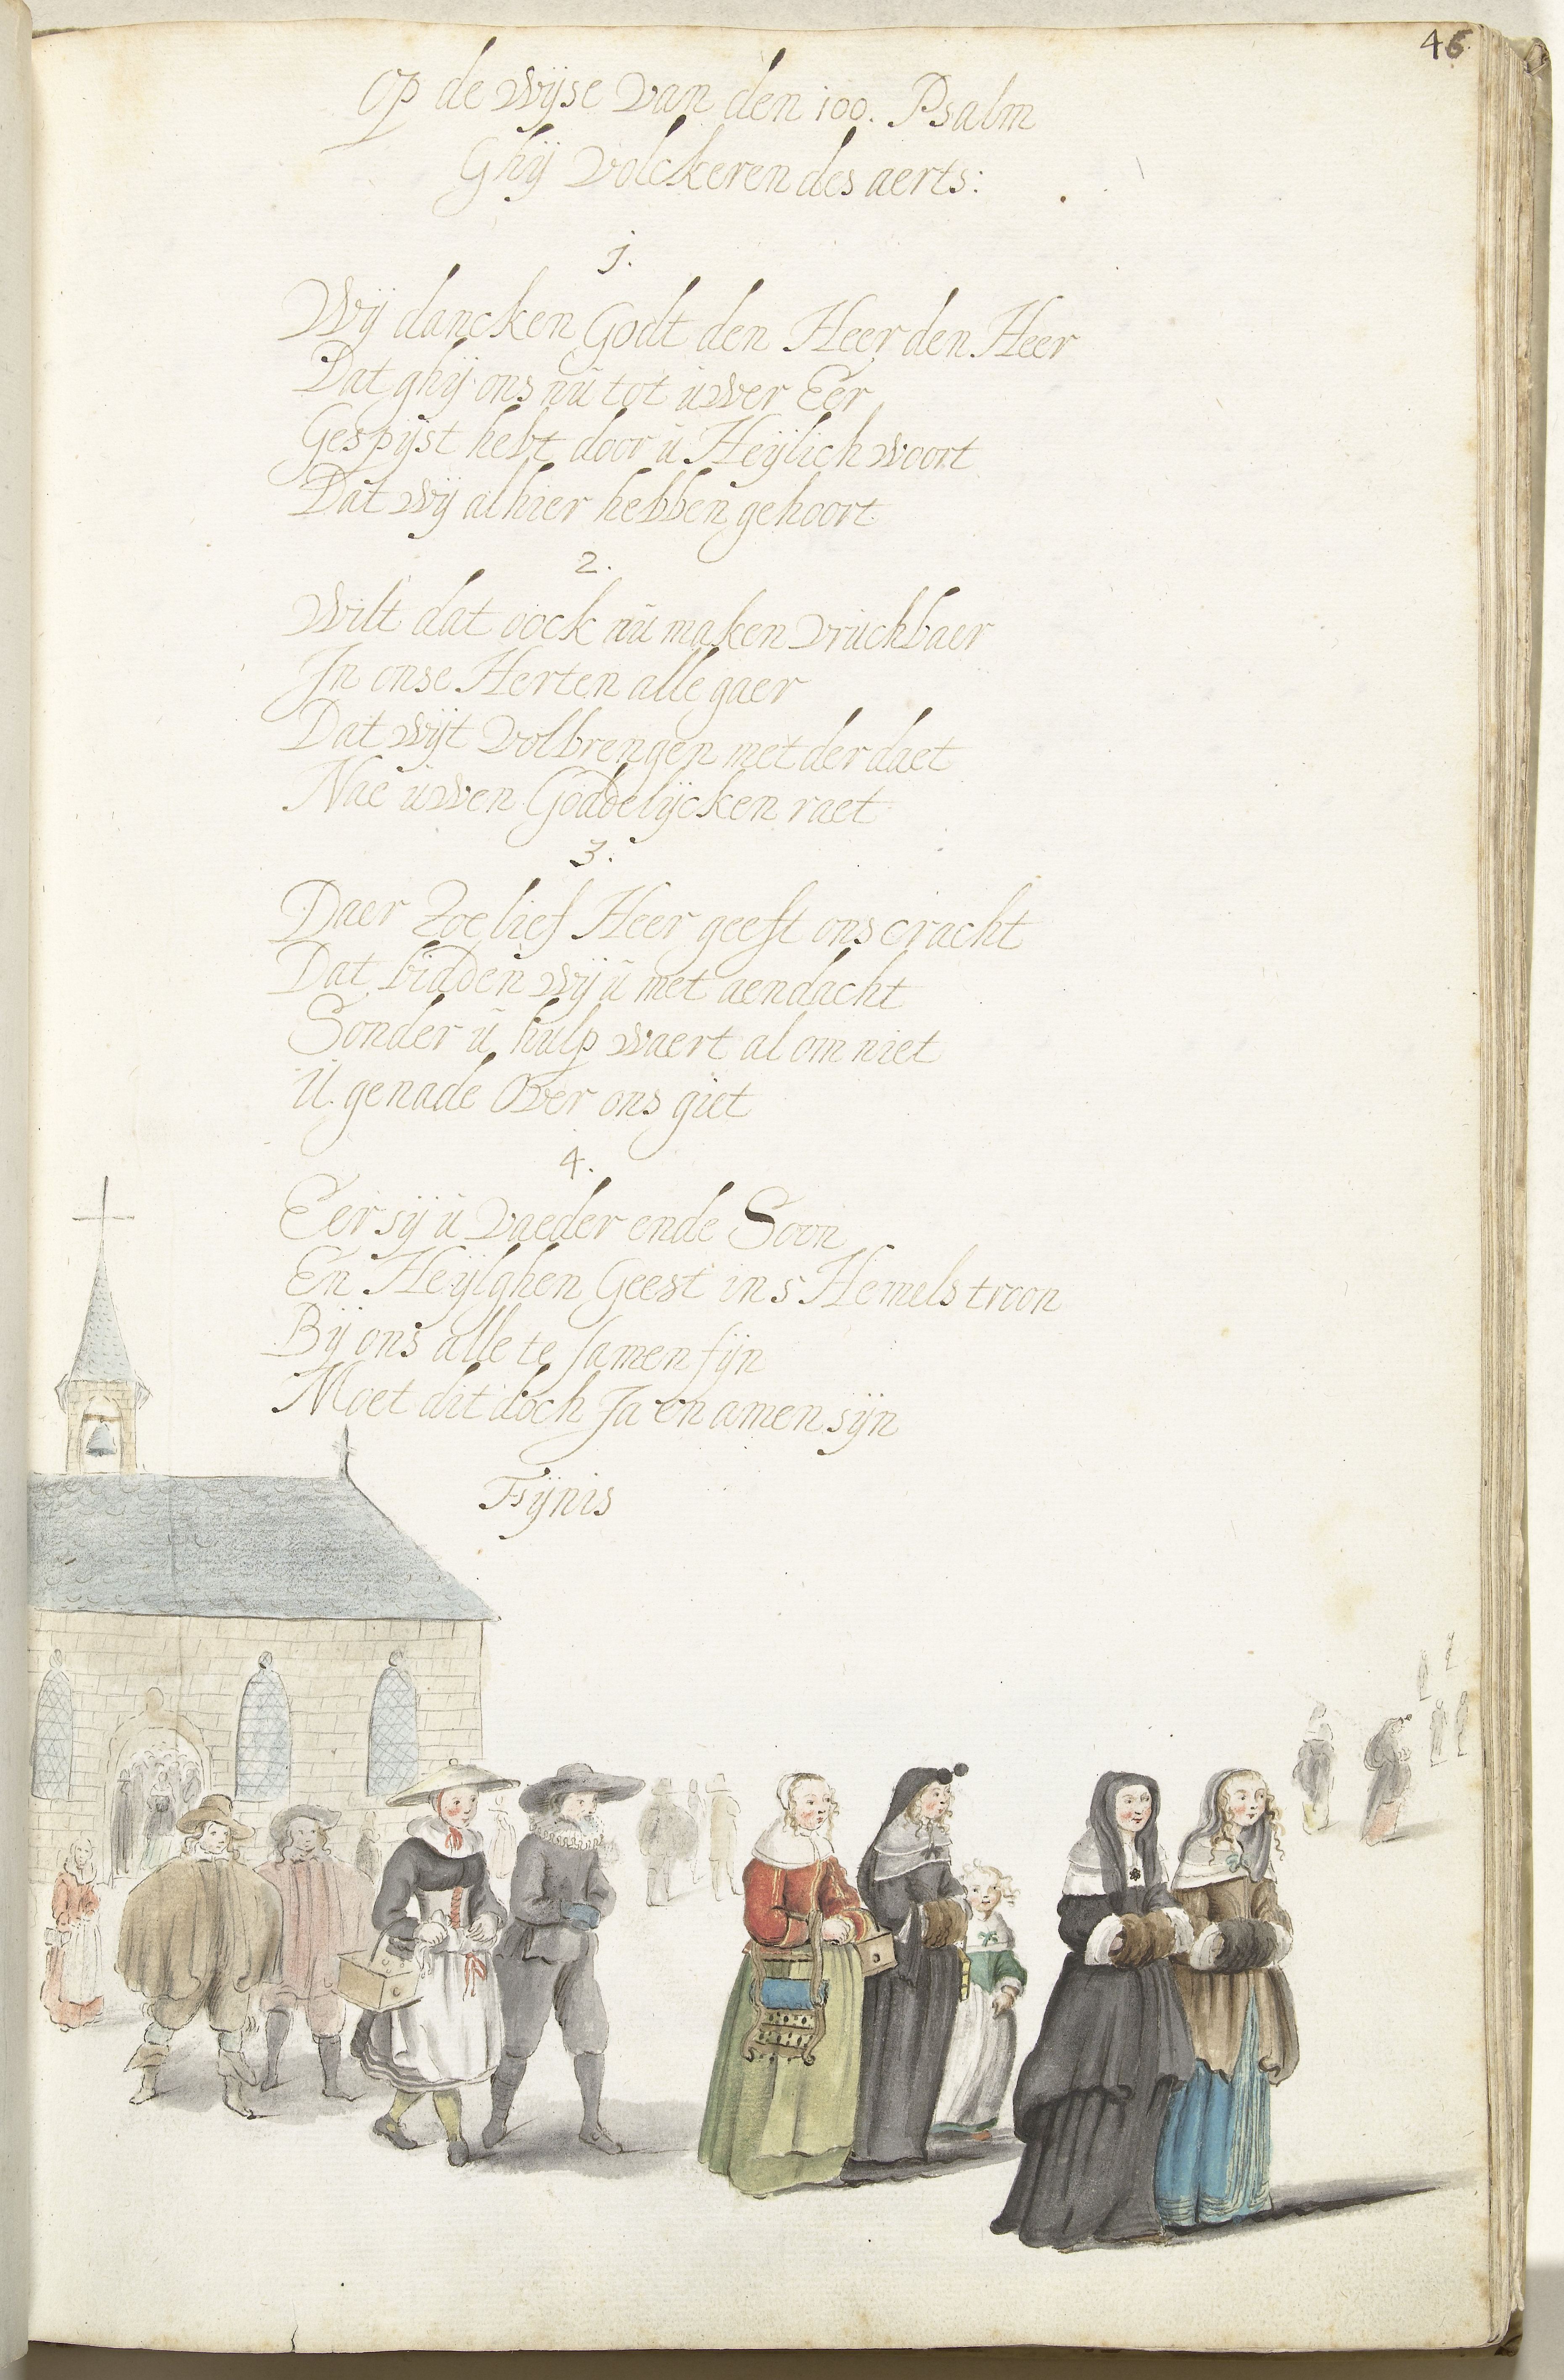 46
Op de wijse van den 100. Psalm
Ghij volckeren des aerts:
1.
Wij dancken Godt den Heer den Heer
Dat ghij ons nú tot úwer Eer
Gespijst hebt door ú Heijlich woort
Dat wij alhier hebben gehoort
2.
Wilt dat oock nú maken vrúchbaer
In onse Herten alle gaer
Dat wijt volbrengen met der daet
Nae úwen Goddelijcken raet
3.
Daer Zoe lief Heer geeft ons cracht
Dat bidden wij ú met aendacht
Sonder ú húlp waert al om niet
Ú genade over ons giet
4.
Eer sij ú vaeder ende Soon
En Heijlghen Geest in s Hemels troon
Bij ons alle te samen sijn
Moet dit doch Ja en amen sijn
Fijnis